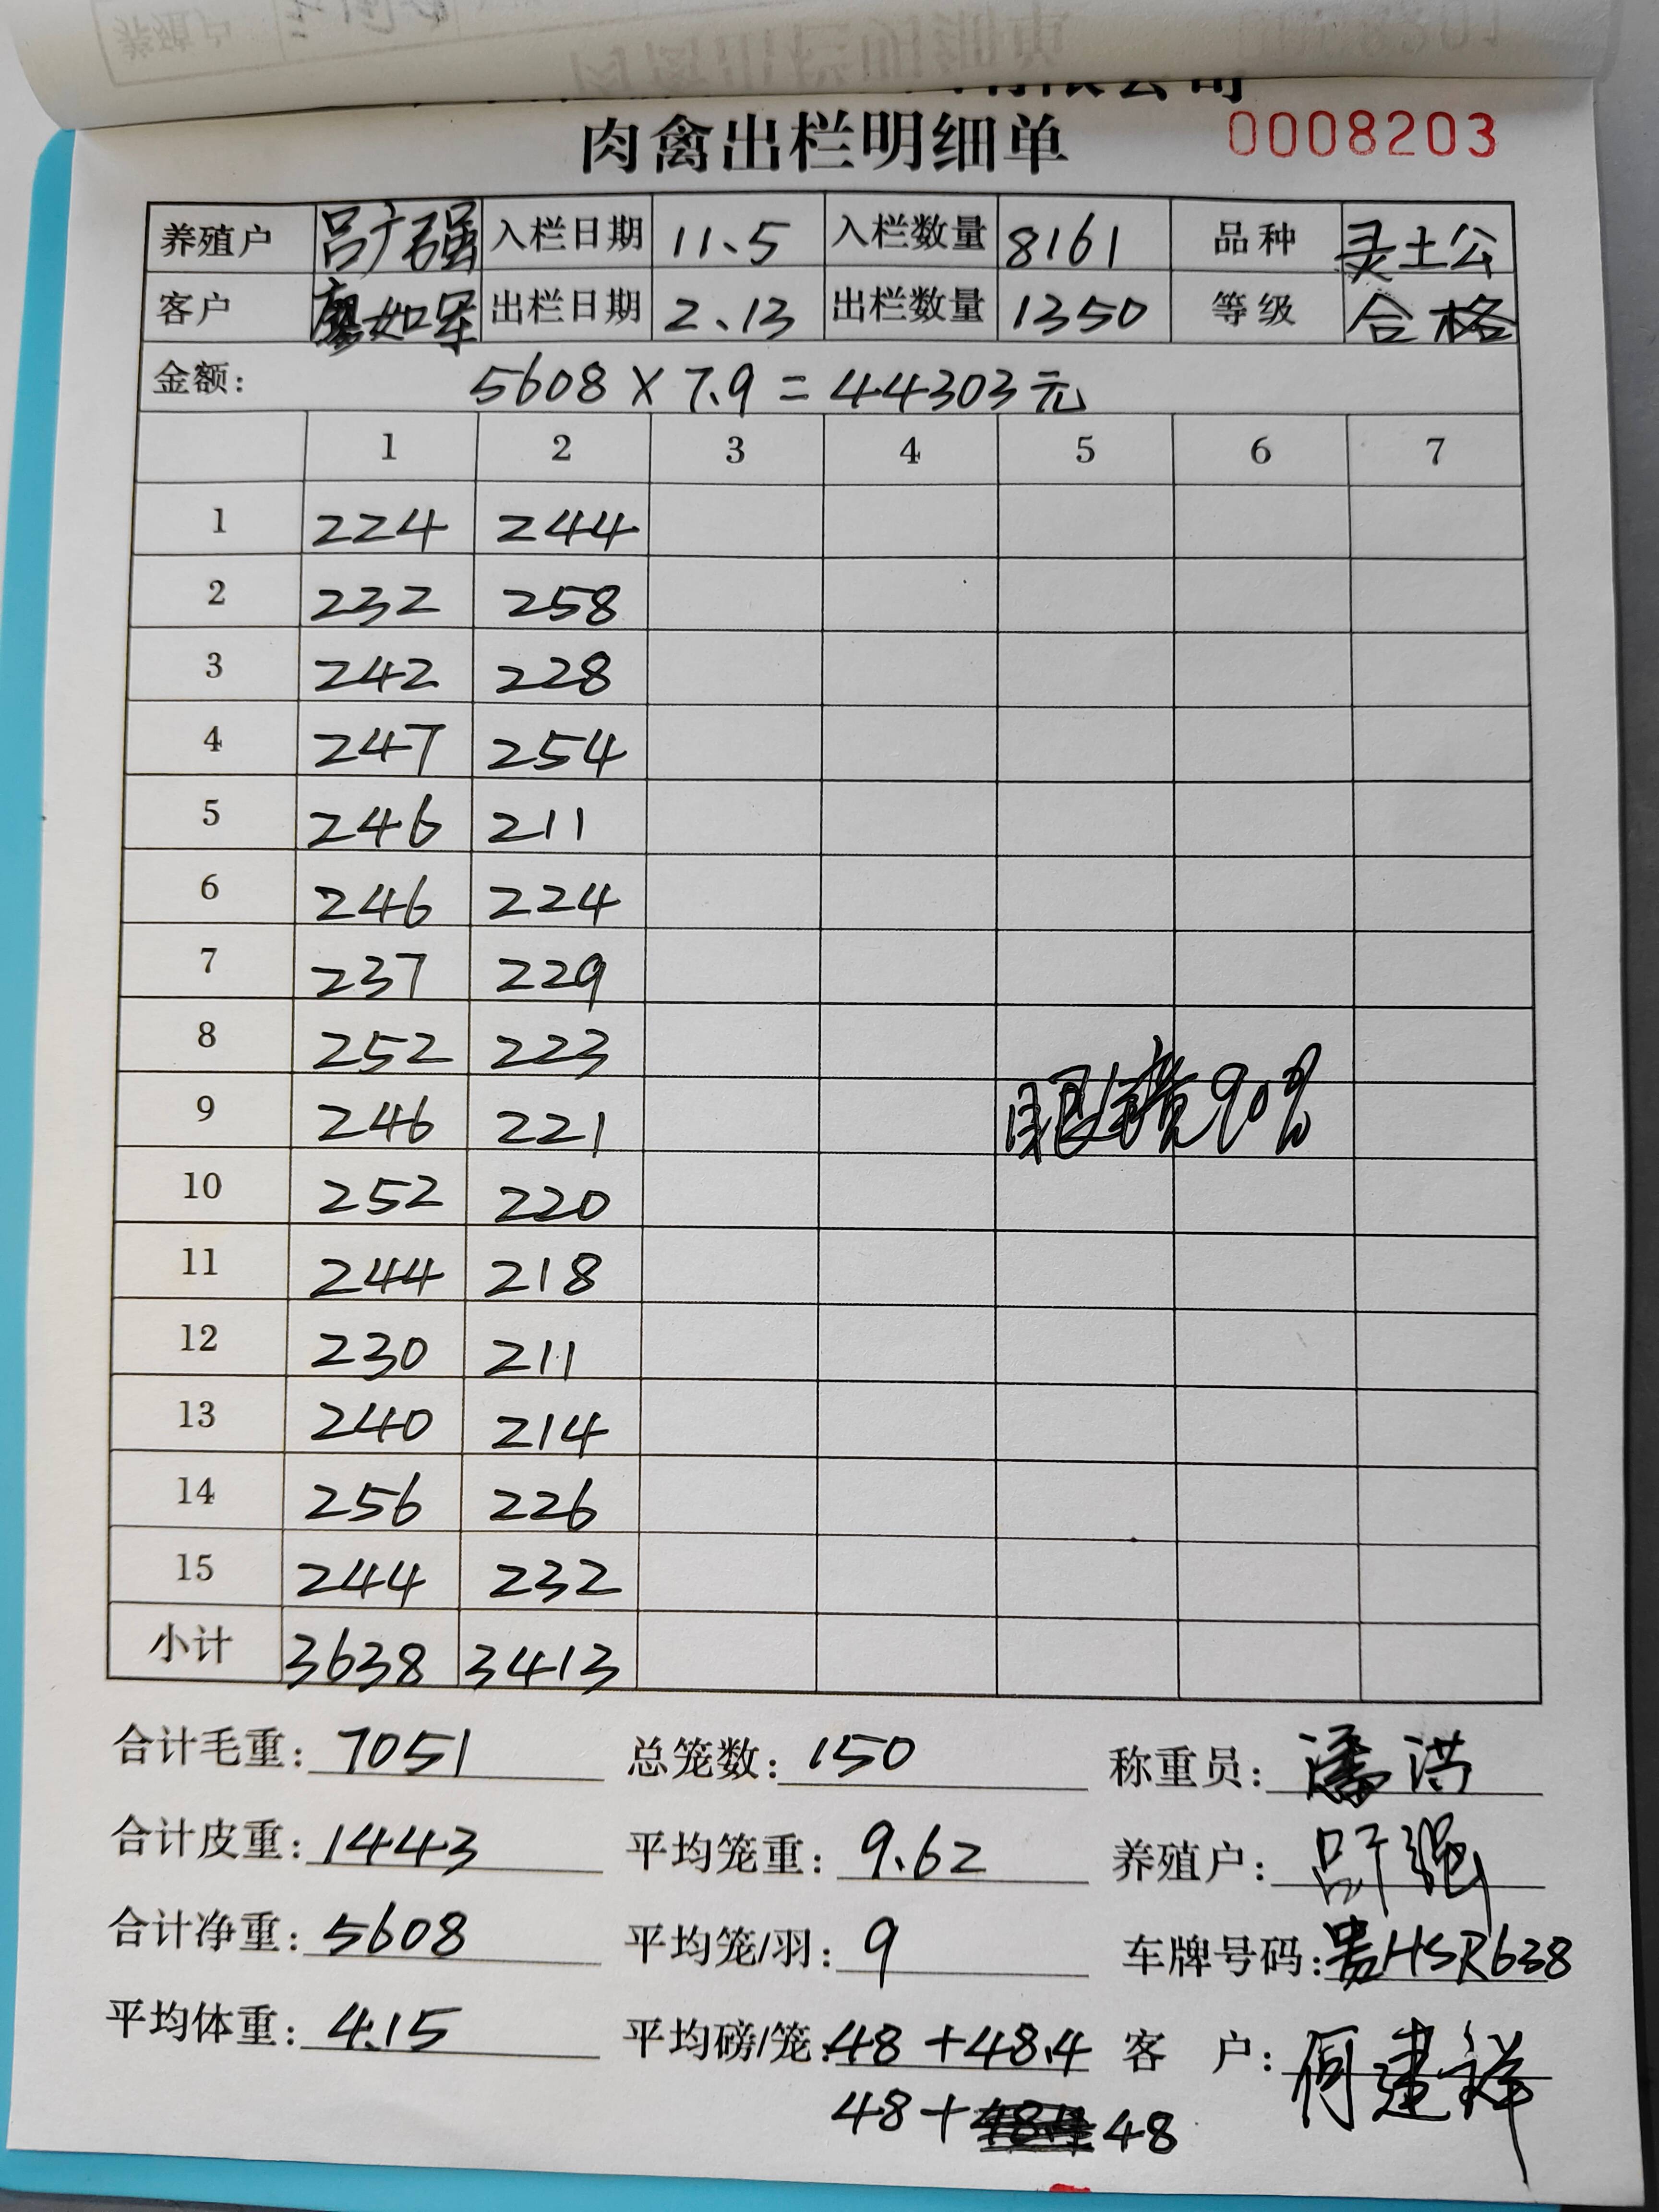 有限公司
肉禽出栏明细单 0008203
养殖户 吕广强 入栏日期 11.5 入栏数量 8161 品种 灵土公
客户 廖如军 出栏日期 2.13 出栏数量 1350 等级 合格
金额: 5608 × 7.9 = 44303元
1 2 3 4 5 6 7
1 224 244
2 232 258
3 242 228
4 247 254
5 246 211
6 246 224
7 237 229
8 252 223
9 246 221 眼 90%
10 252 220
11 244 218
12 230 211
13 240 214
14 256 226
15 244 232
小计 3638 3413
合计毛重: 7051 总笼数: 150 称重员: 潘洪
合计皮重: 1443 平均笼重: 9.62 养殖户: 吕广强
合计净重: 5608 平均笼/羽: 9 车牌号码: 贵HSR638
平均体重: 4.15 平均磅/笼: 48 + 48.4 客 户: 何建祥
48 + 48